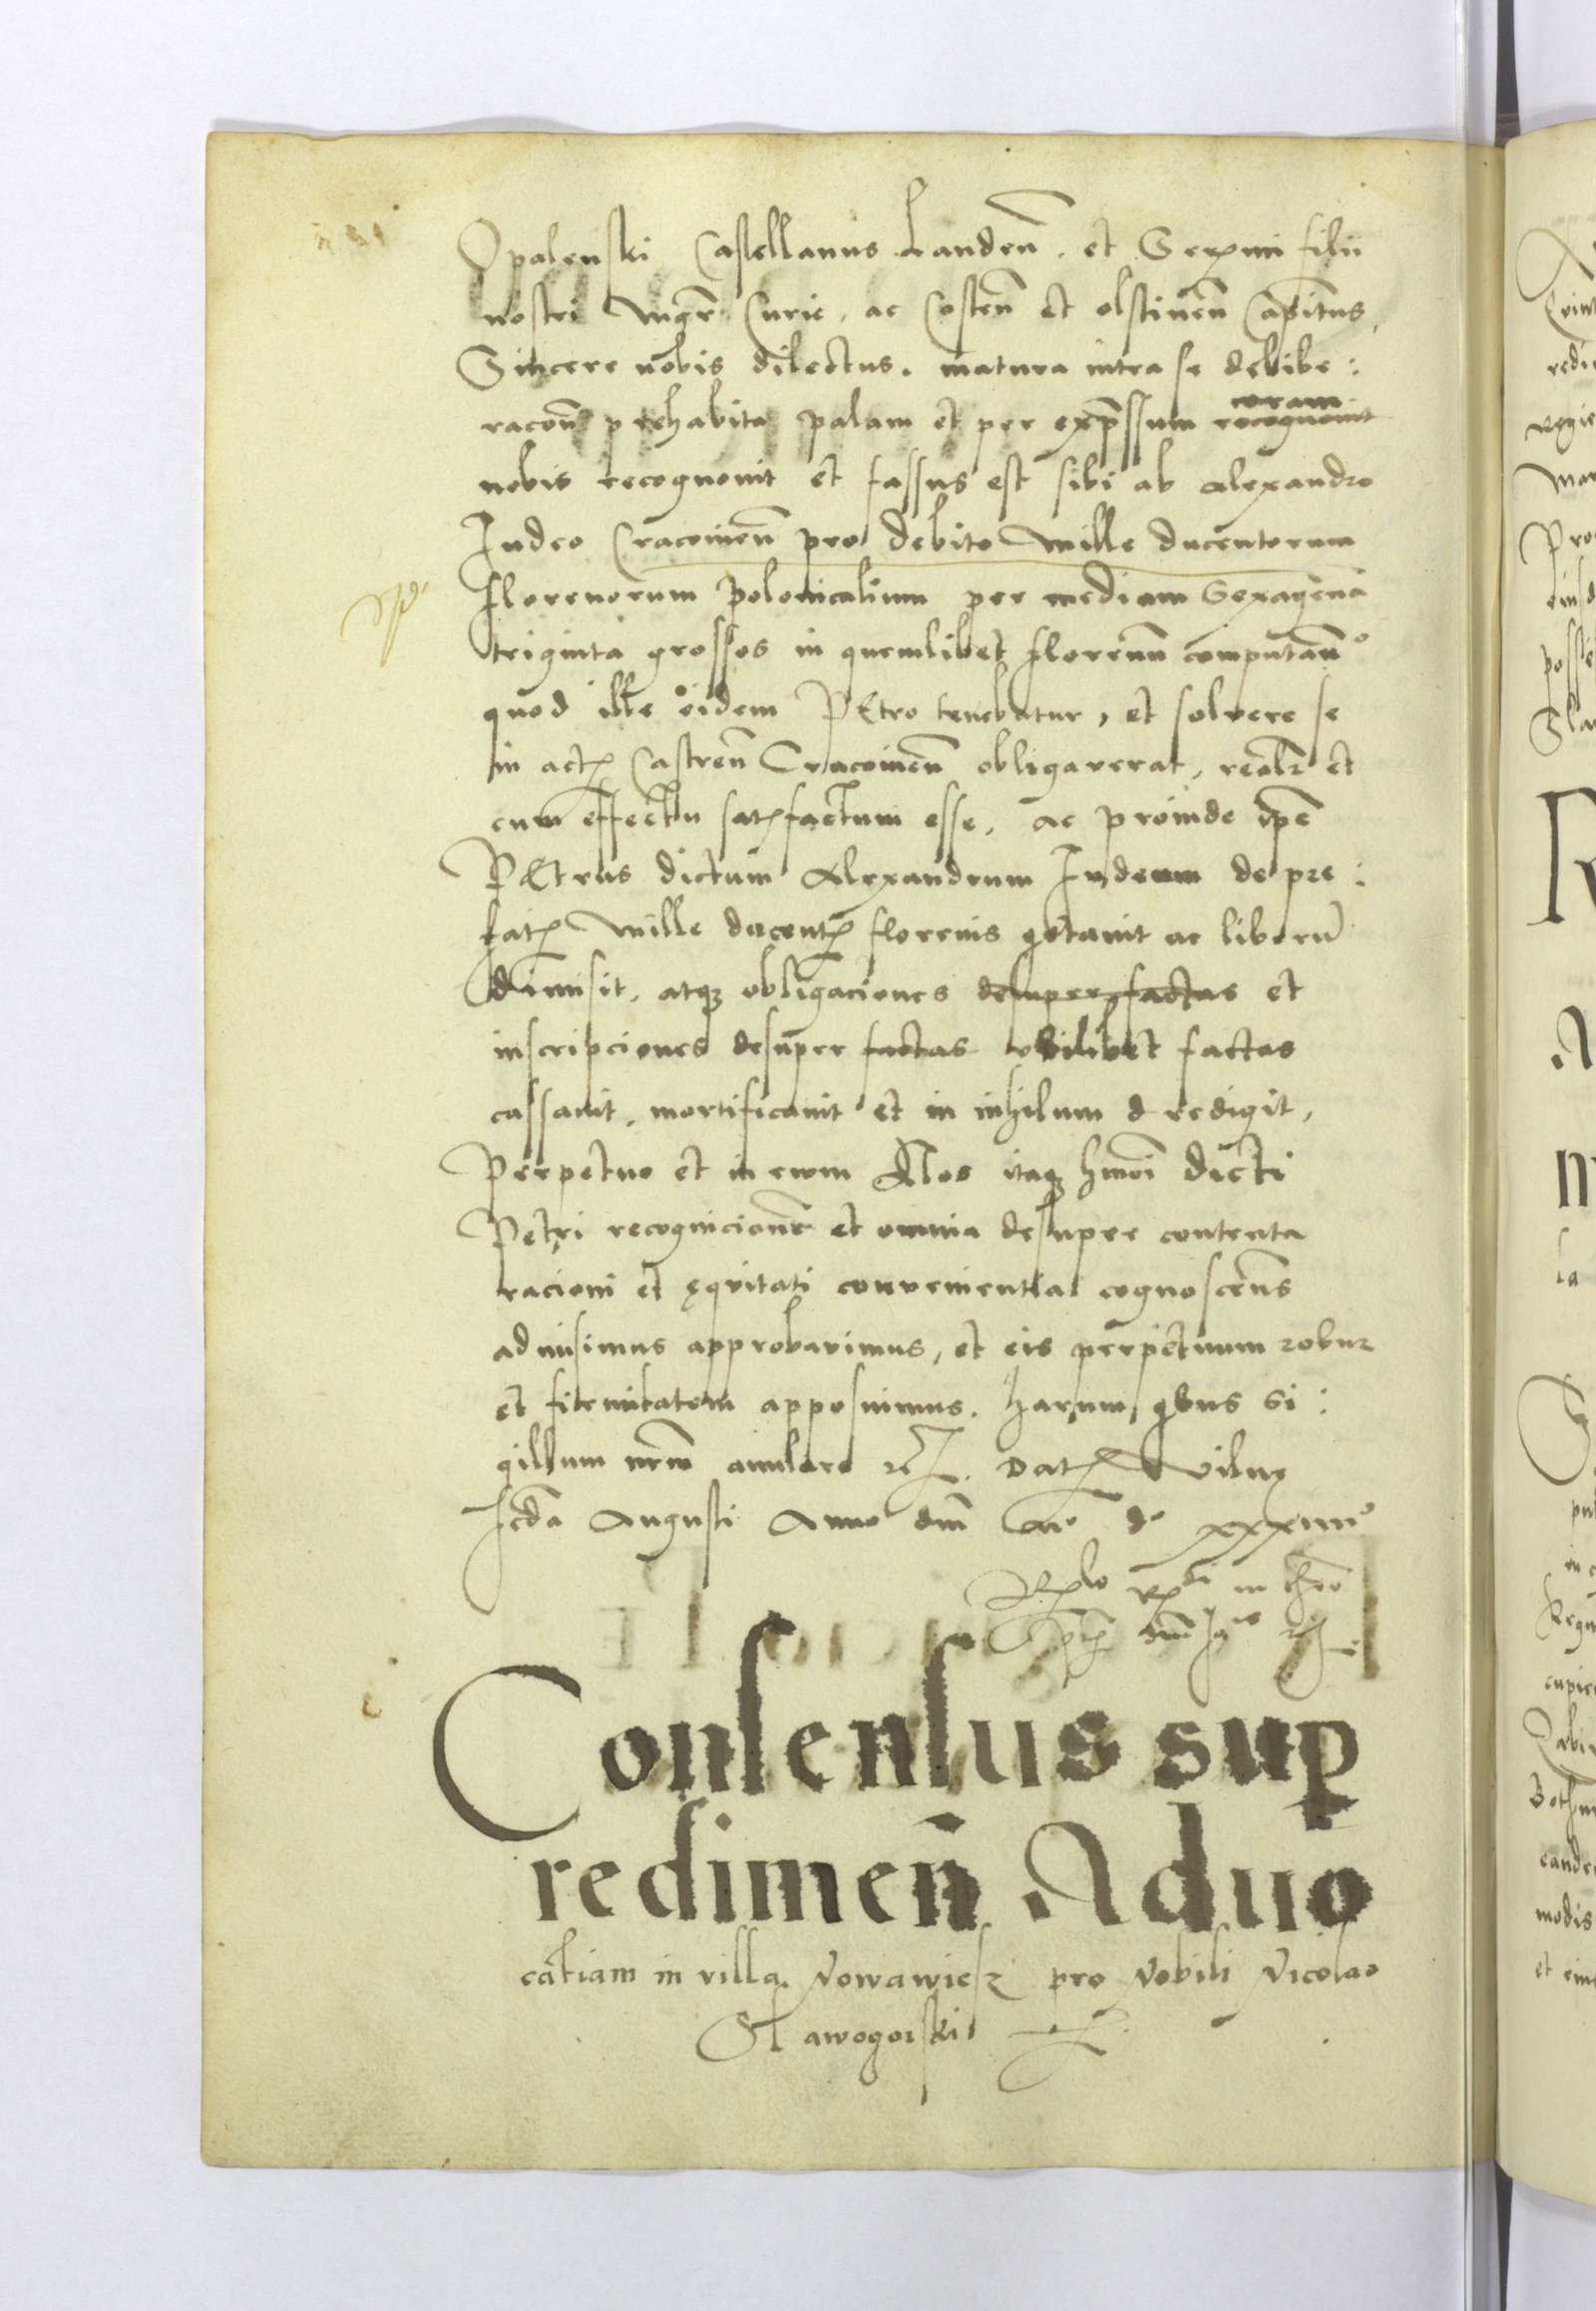 Opalenski Castellanus Landeñ. et Sermi filii
nostri Mgr̃ Curie, ac Costeñ et olstineñ Capitꝰ,
Sincere nobis dilectus. matura intra se delibe:
racoñe prehabita palam et per exp̃ssum recognouit coram
nobis recognouit et fassus est sibi ab Alexandro
Iudeo Cracouieñ pro debito mille ducentorum
florenorum polonicalium per mediam Sexagenã
triginta grossos in quemlibet florenũ computañ°
quod ille eidem PEtro tenebatur, et solvere se
in actꝭ Castreñ Cracouieñ obligaverat, realr̃ et
cum effectu satꝭfactum esse, ac proinde ip̃e
PEtrus dictum Alexandrum Iudeum de pre:
fatꝭ mille ducentꝭ florenis q̃tauit ac liberũ
dimisit, atqꝫ obligaciones desuper factas et
inscripciones desuper factas vbilibet factas
cassauit, mortificauit et in nihilum d redigit,
Perpetuo et in evum Nos itaqꝫ hmõi dicti
Petri recognicionẽ et omnia desuper contenta
racioni et ęquitati convenientia cognoscẽns
admisimus approbavimus, et eis perpetuum robur
et firmitatem apposuimus. harum qbus si:
gillum nrm̃ anulare ꝛc̃. Datꝭ Vilnę
scda Augusti Anno dñi M° d° xxxiiii°
Consensus sup
redimeñ Aduo
catiam in villa Nowawiesz pro Nobili Nicolao
Stawogorski